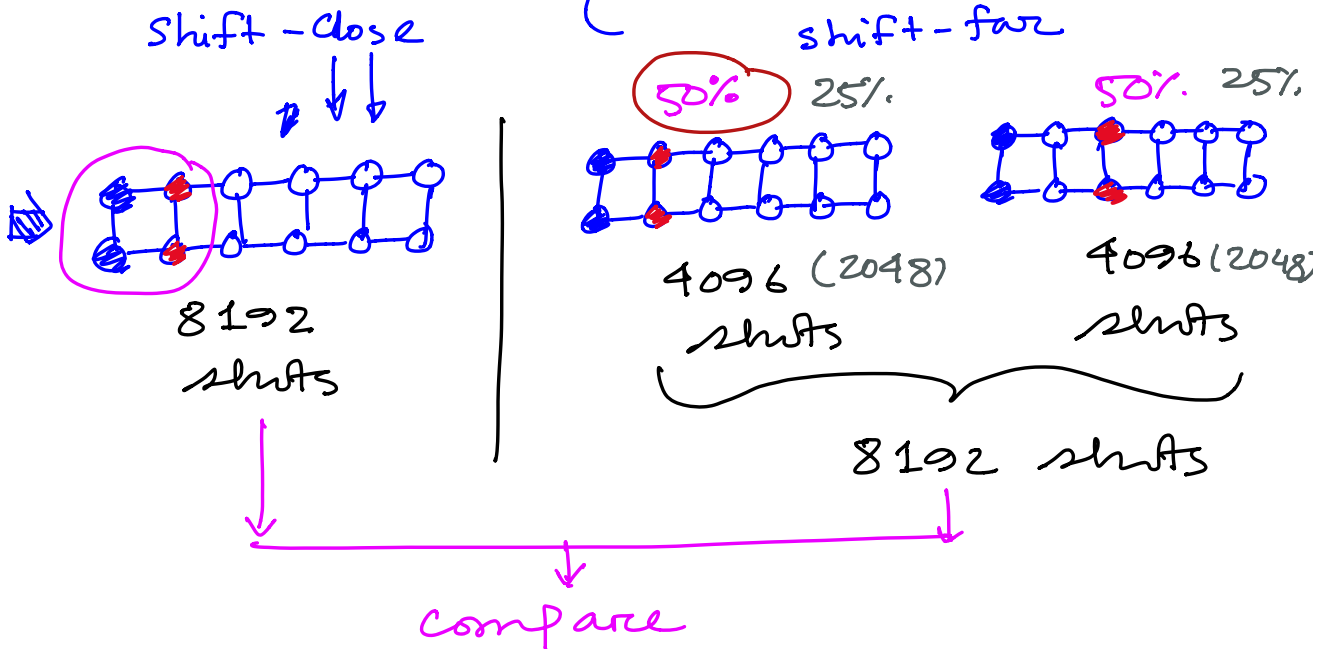 shift-close
8192
shots
shift-far
50% 25%.
4096 (2048)
shots
50%. 25%.
4096 (2048)
shots
8192 shots
compare